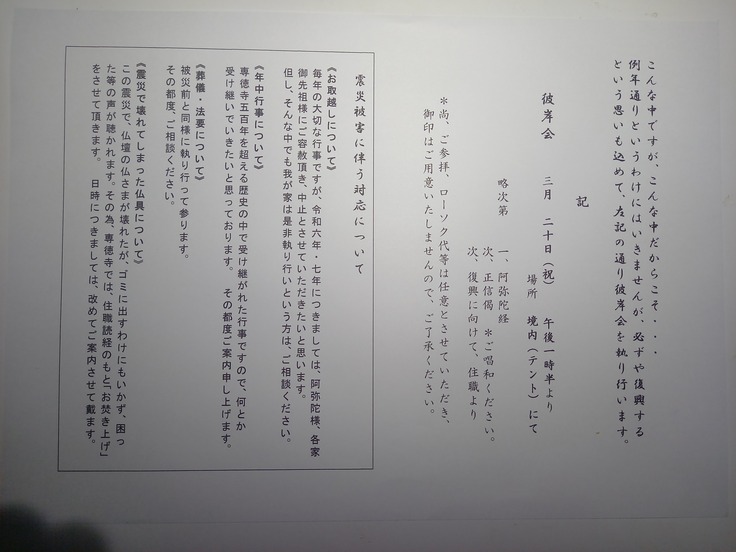 こんな中ですが、こんな中だからこそ・・・
例年通りというわけにはいきませんが、必ずや復興する
という思いも込めて、左記の通り彼岸会を執り行います。
記
彼岸会 三月 二十日(祝) 午後一時半より
場所 境内(テント)にて
略次第 一、阿弥陀経
次、正信偈 *ご唱和ください。
次、復興に向けて、住職より
*尚、ご参拝、ローソク代等は任意とさせていただき、
御印はご用意いたしませんので、ご了承ください。
震災被害に伴う対応について
《お取越しについて》
毎年の大切な行事ですが、令和六年・七年につきましては、阿弥陀様、各家
御先祖様にご容赦頂き、中止とさせていただきたいと思います。
但し、そんな中でも我が家は是非執り行いという方は、ご相談ください。
《年中行事について》
専徳寺五百年を超える歴史の中で受け継がれた行事ですので、何とか
受け継いでいきたいと思っております。 その都度ご案内申し上げます。
《葬儀・法要について》
被災前と同様に執り行って参ります。
その都度、ご相談ください。
《震災で壊れてしまった仏具について》
この震災で、仏壇の仏さまが壊れたが、ゴミに出すわけにもいかず、困っ
た等の声が聴かれます。その為、専徳寺では、住職読経のもと「お焚き上げ」
をさせて頂きます。 日時につきましては、改めてご案内させて戴ます。